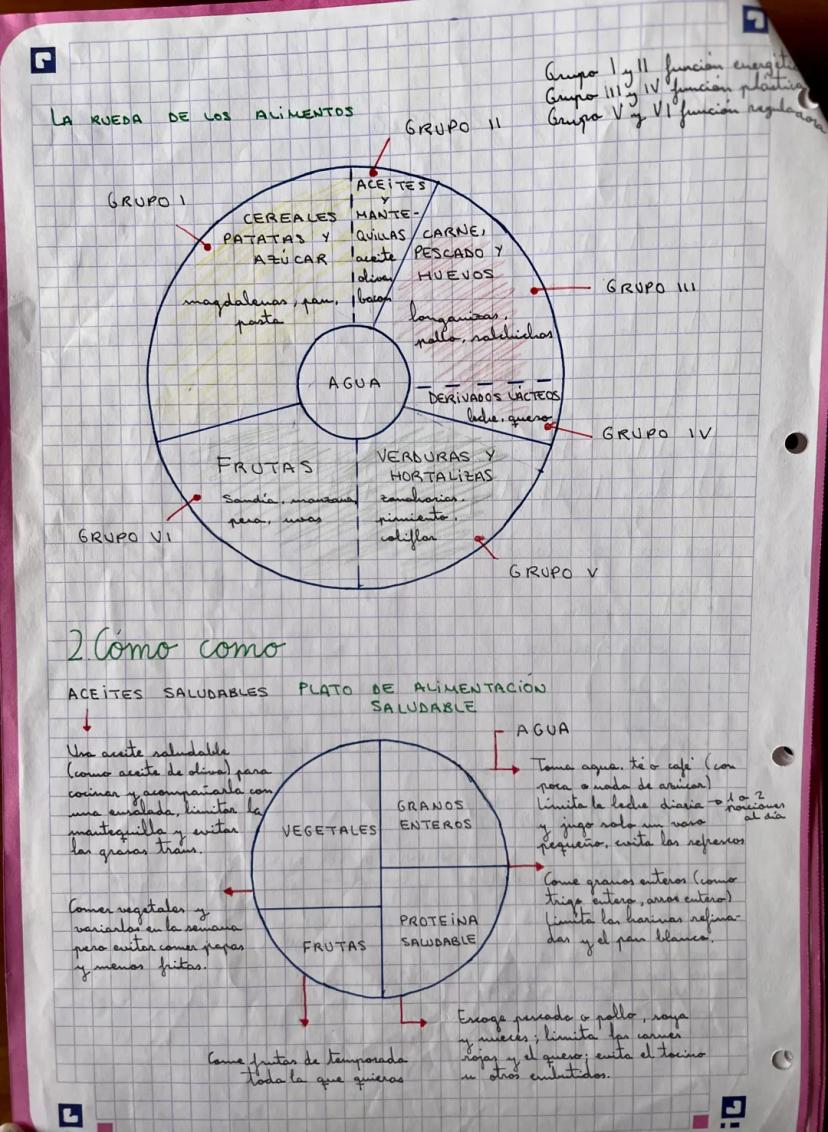 Grupo I y II función energéti
Grupo III y IV función plástica
Grupo V y VI función reguladora
LA RUEDA DE LOS ALIMENTOS
GRUPO II
GRUPO I
ACEITES
Y
MANTE-
QUILLAS
aceite
oliva,
bacon
CEREALES
PATATAS Y
AZÚCAR
magdalenas, pan,
pasta
CARNE,
PESCADO Y
HUEVOS
longanizas,
pollo, salchichas
GRUPO III
AGUA
DERIVADOS LÁCTEOS
leche, queso
GRUPO IV
FRUTAS
Sandía, manzana,
pera, uvas
VERDURAS Y
HORTALIZAS
zanahorias,
pimiento,
coliflor
GRUPO VI
GRUPO V
2. Cómo como
ACEITES SALUDABLES
PLATO DE ALIMENTACIÓN
SALUDABLE
Usa aceite saludable
(como aceite de oliva) para
cocinar y acompañarla con
una ensalada, limitar la
mantequilla y evitar
las grasas trans.
AGUA
Toma agua, té o café (con
poca o nada de azúcar)
Limita la leche diaria → 1 o 2
porciones
al día
y jugo solo un vaso
pequeño, evita los refrescos
VEGETALES
GRANOS
ENTEROS
FRUTAS
PROTEINA
SALUDABLE
Come granos enteros (como
trigo entero, arroz entero)
Limita las harinas refina-
das y el pan blanco.
Comer vegetales y
variarlos en la semana
pero evitar comer papas
y menos fritas.
Come frutas de temporada
toda la que quieras
Escoge pescado o pollo, soya
y nueces; limita las carnes
rojas y el queso; evita el tocino
u otros embutidos.